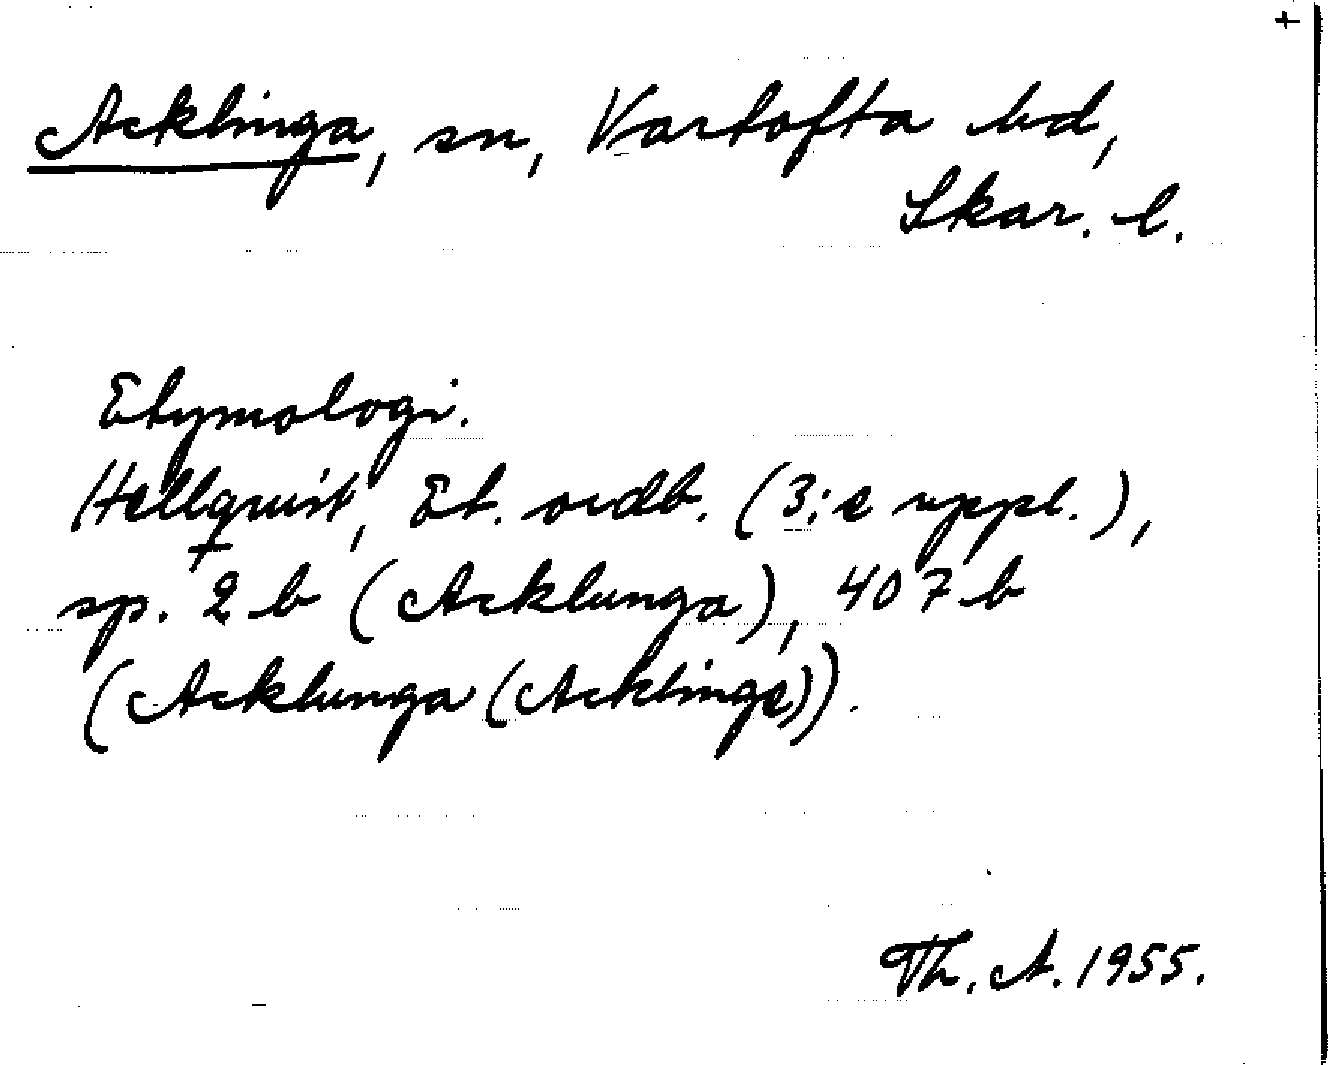 +
Acklinga, sn, Vartofta hd,
Skar. l.
Etymologi.
Hellquist, Et. ordb. (3:e uppl.),
sp. 2 b (Acklunga), 407 b
(Acklunga (Acklinge)).
Th. A. 1955.